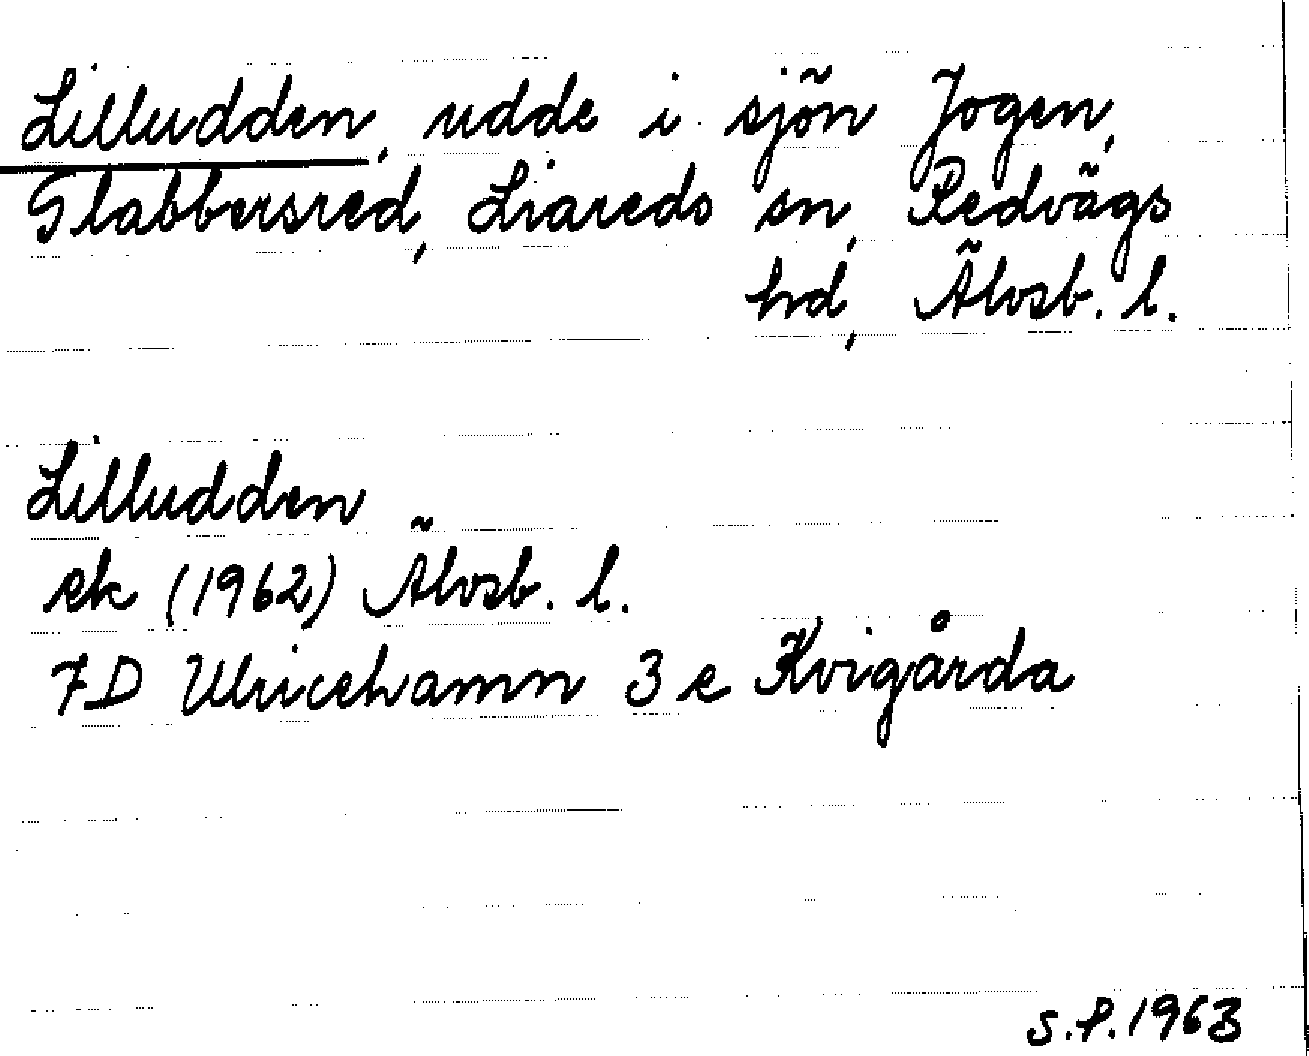 Lilludden, udde i sjön Jogen,
Slabbersred, Liareds sn, Redvägs
hd, Älvsb. l.
Lilludden
ek (1962) Älvsb. l.
7D Ulricehamn 3 e Kvigårda
S.P. 1963